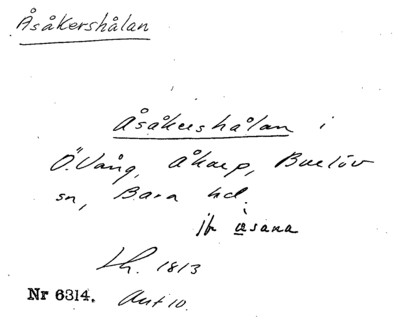 Åsåkershålan
Åsåkershålan i
Ö. Vång, Åkarp, Burlöv
sn, Bara hd.
jfr åsana
Lh. 1813
Nr 6314. Akt 10.